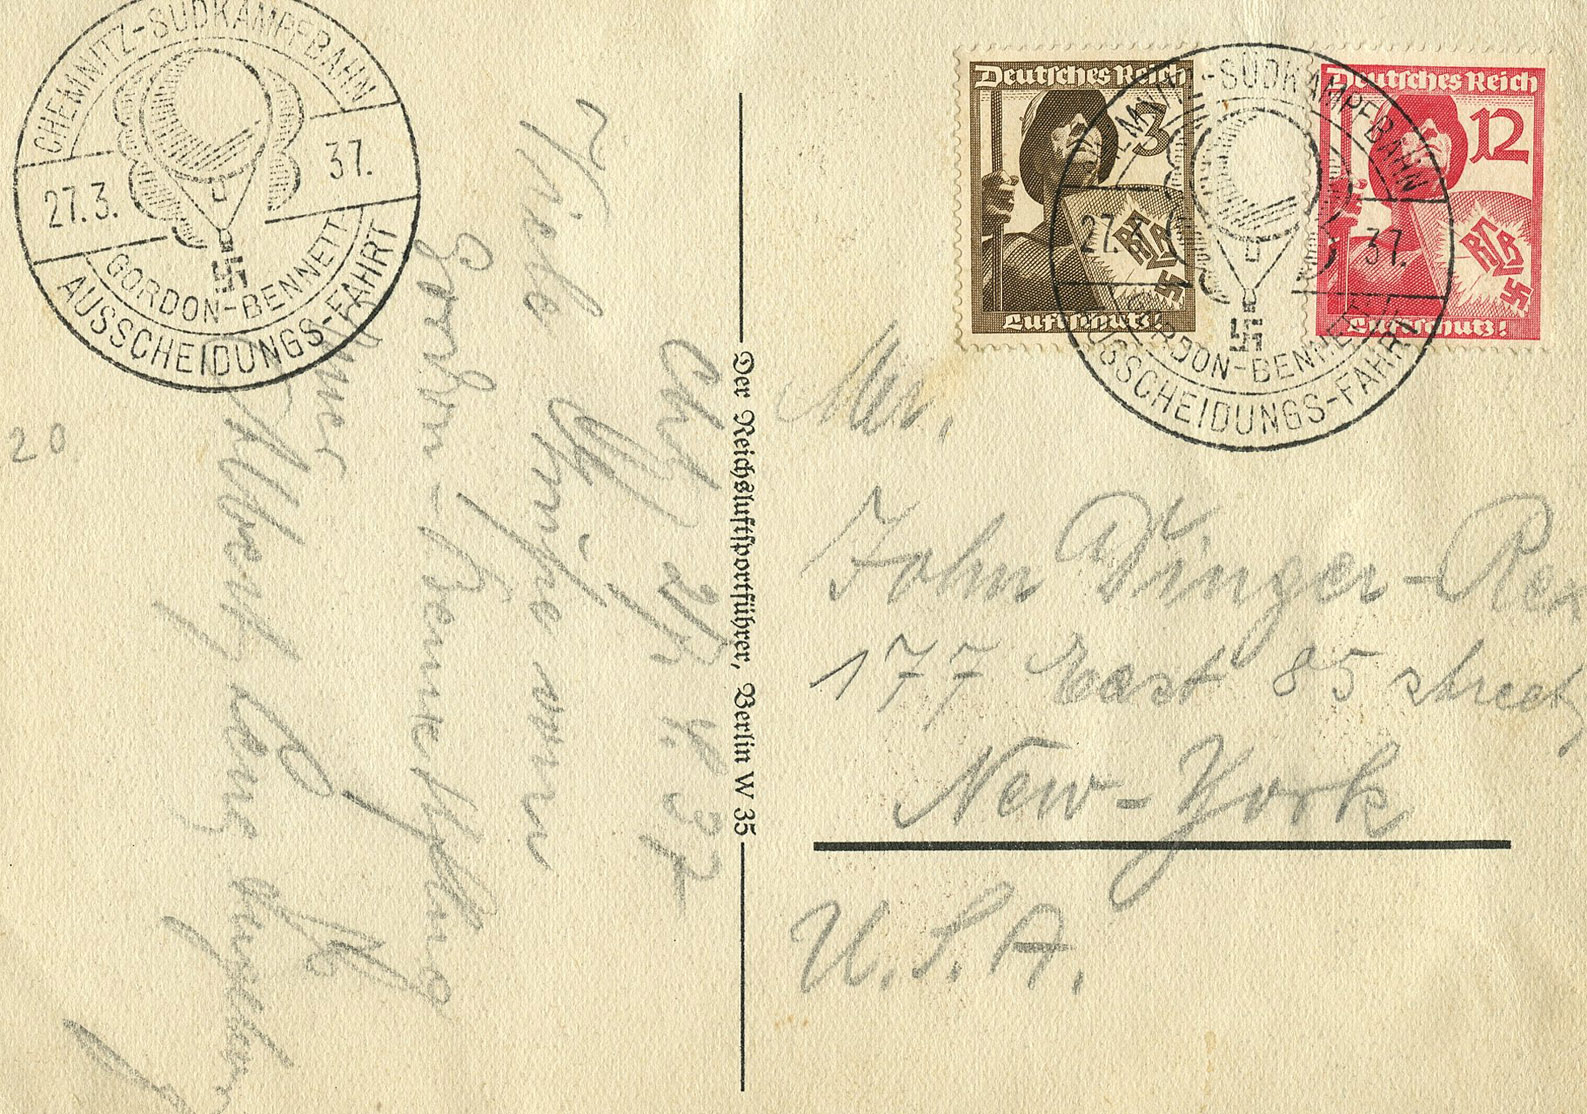 CHEMNITZ-SÜDKAMPFBAHN
27.3. 37.
GORDON-BENNETT
AUSSCHEIDUNGS-FAHRT
20.
Ch, 27. 3. 37
Viele Grüße vom
Gordon-Bennettflug
Albert
Der Reichsluftsportführer, Berlin W 35
Deutsches Reich
3
RLB
Luftschutz!
Deutsches Reich
12
RLB
Luftschutz!
CHEMNITZ-SÜDKAMPFBAHN
27.3. 37.
GORDON-BENNETT
AUSSCHEIDUNGS-FAHRT
Mr.
John Dinger-Rex
177 East 85 street
New-York
U.S.A.